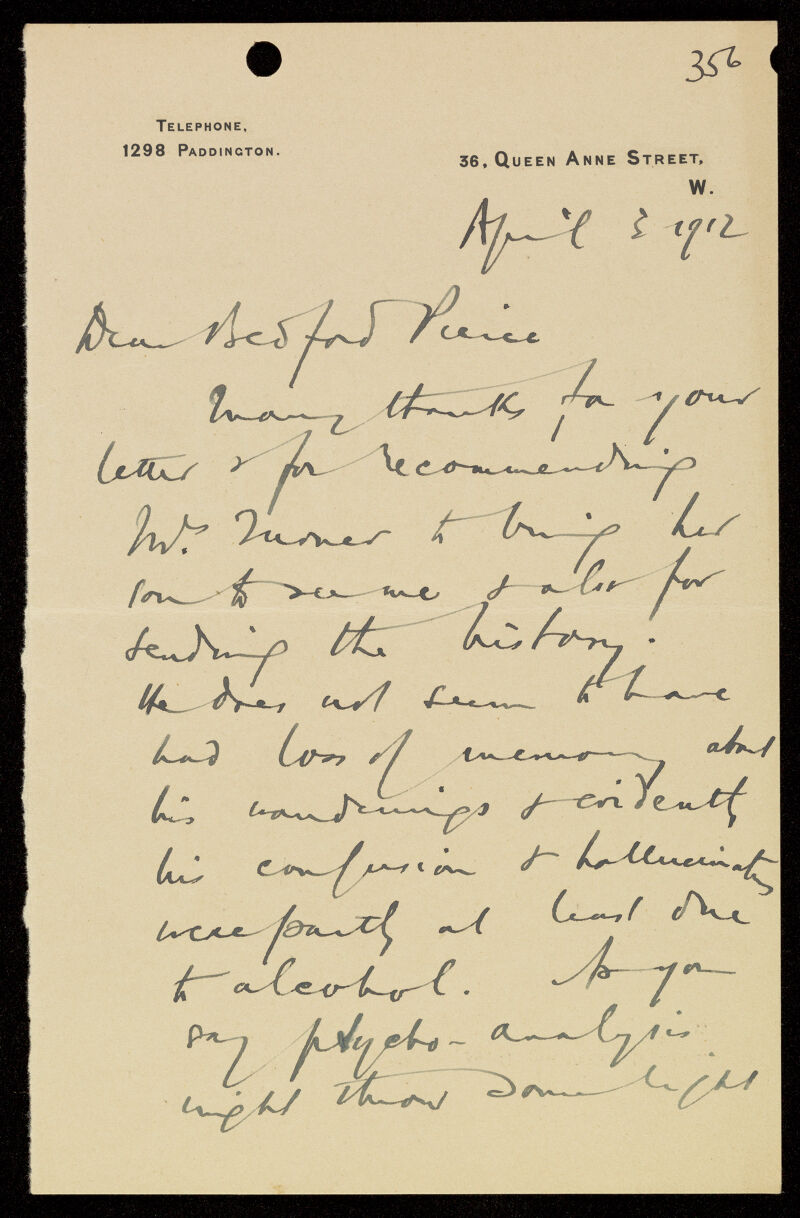 356
TELEPHONE,
1298 PADDINGTON.
36, QUEEN ANNE STREET,
W.
April 3 1912
Dear Bedford Pierce
Many thanks for your
letter & for recommending
Mrs. to bring her
son to see me & also for
sending the history.
He does not seem to have
had loss of memory about
his wanderings & evidently
his confusion & hallucinations
were partly at least due
to alcohol. As you
say psycho-analysis
might throw some light